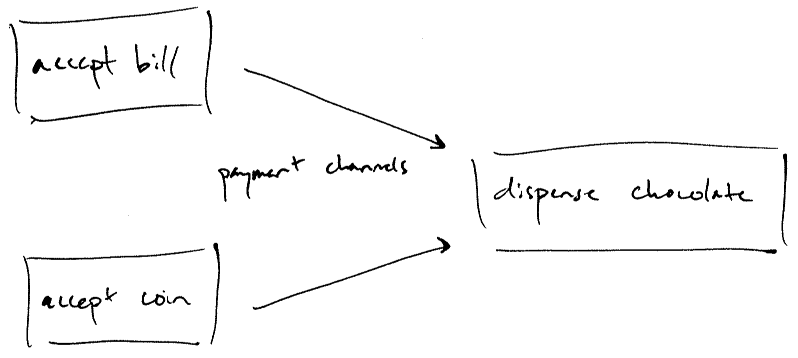 accept bill
payment channels
dispense chocolate
accept coin